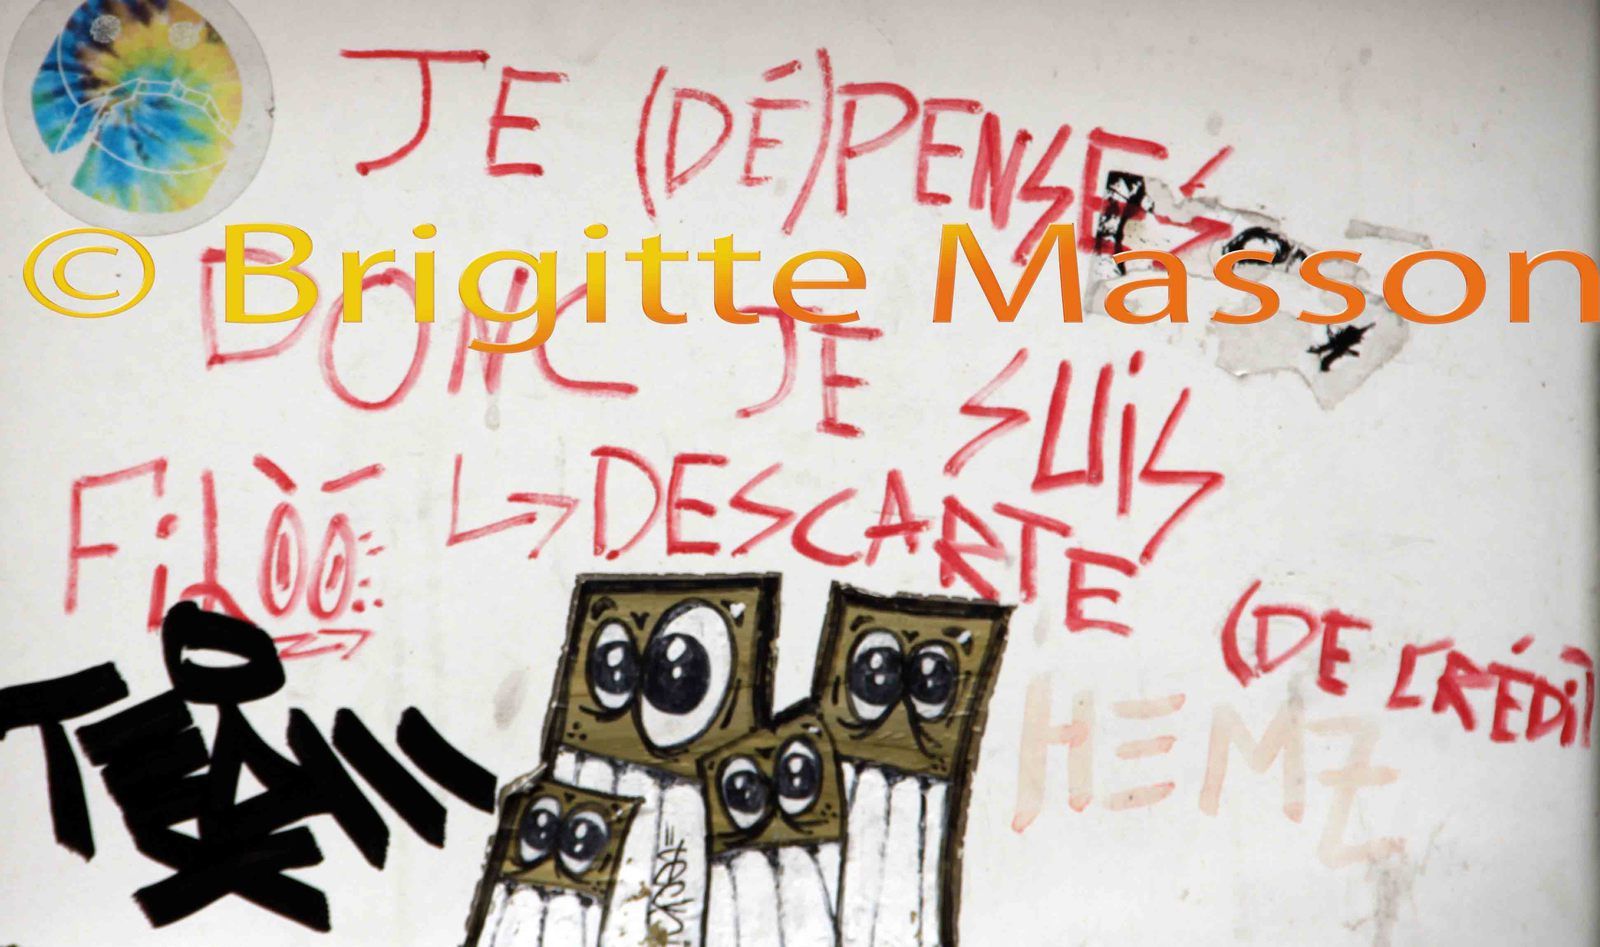 JE (DÉ)PENSES
© Brigitte Masson
DONC JE SUIS
↳ DESCARTE
(DE CRÉDIT
HEMZ